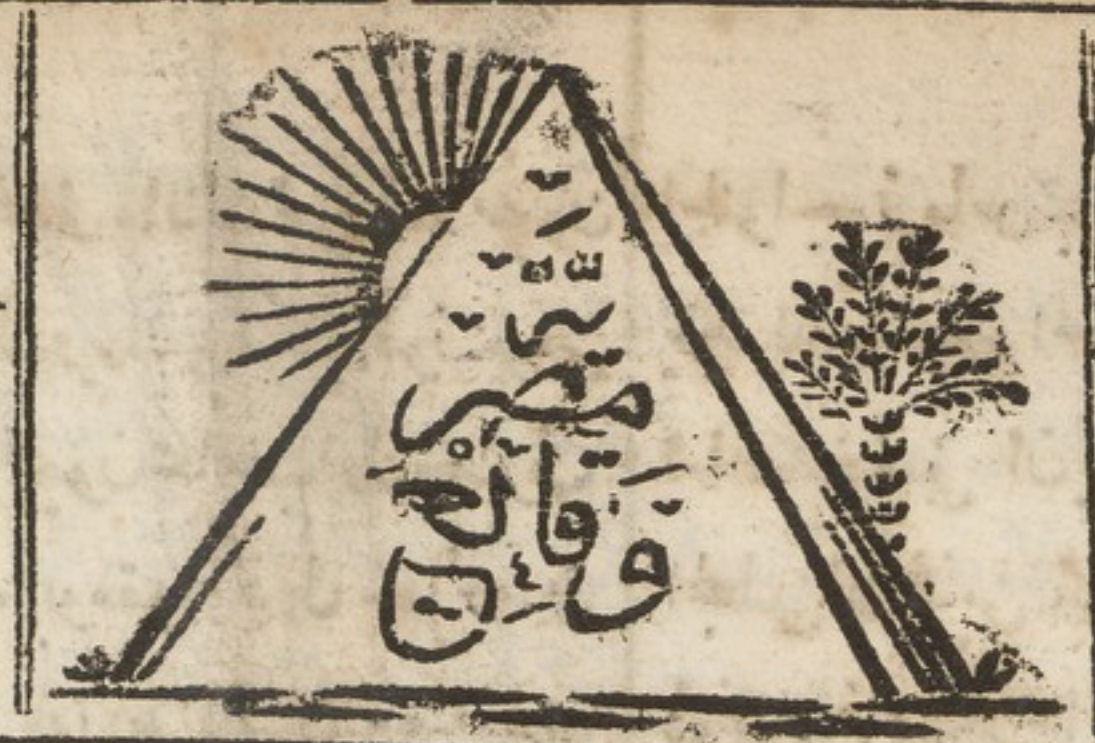 وقائع
مصرية